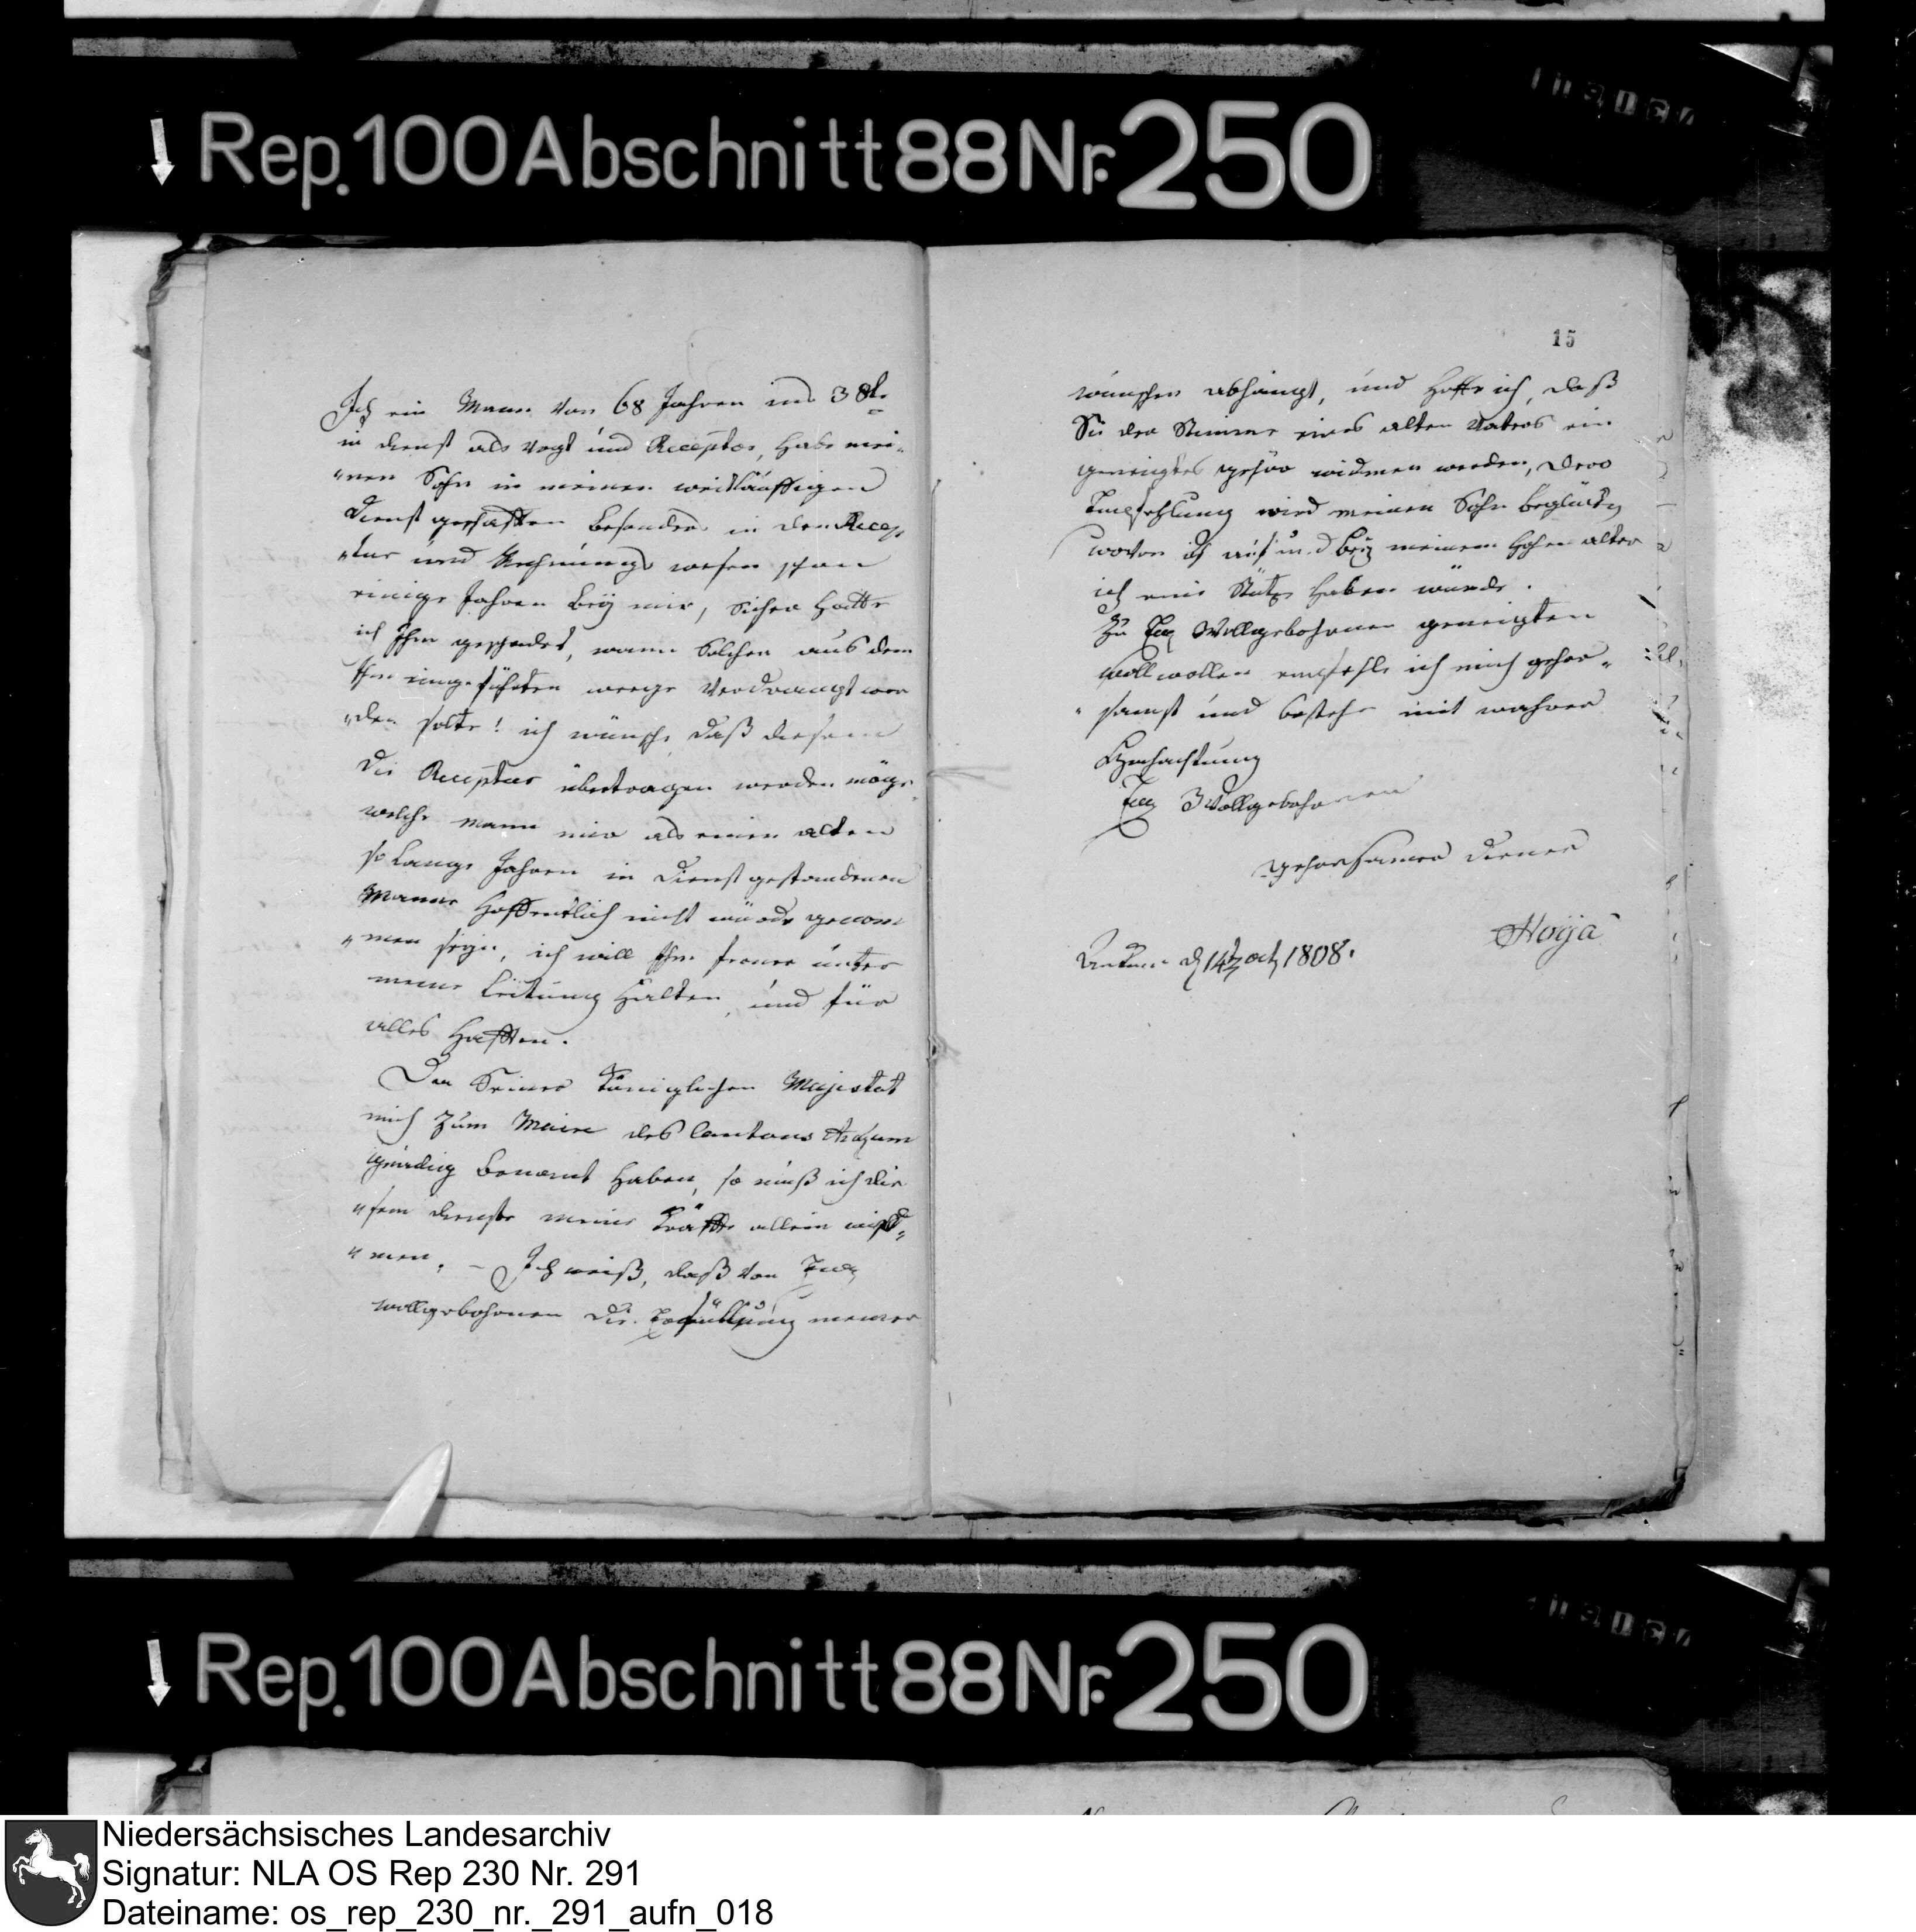 Rep. 100 Abschnitt 88 Nr. 250
Ich ein Mann von 68 Jahren im 38t.
in dienst als Vogt und Receptor, habe mei-
"nen Sohn in meinen weitläuffigen
Dienst gehalten besonders in den Recep
"tur und Rechnungs wesen schon
einige Jahren beÿ mir, sicher hätte
ich Ihm geschadet, wann solcher aus dem
Ihm eingeführten weege verdrangt wer
"den solte! ich wünsche daß diesem
die Receptur übertragen werden möge
welche mann mir als einen alten
so lange Jahren in Dienst gestandenen
Manne hoffentlich nicht würde genom
"men seÿn, ich will Ihn ferner unter
meine Leitung halten, und für
alles hafften.
Da Seiner Königlichen Majestat
mich zum Maire des Cantons Ankum
gnädig benamt haben, so muß ich die
"sem dienste meine Kräffte allein wid-
"men. – Ich weiß, daß von Euer
wollgebohrnen die Erfüllung meiner
15
wünschen abhängt, und hoffe ich, daß
Sie der Stimme eines alten Vaters ein
geneigtes gehör widmen werden, dero
Empfehlung wird meinen Sohn beglücken
wovon ich auf und beÿ meinem hohen alter
ich eine Stütze haben würde.
Zu Euer Wollgebohrnen geneigten
wollwollen empfehle ich mich gehor-
"samst und bestehe mit wahrer
Hochachtung
Euer Wollgebohrnen
gehorsamer Diener
Noÿa
Ankum d 14t oct 1808.
Rep. 100 Abschnitt 88 Nr. 250
Niedersächsisches Landesarchiv
Signatur: NLA OS Rep 230 Nr. 291
Dateiname: os_rep_230_nr._291_aufn_018